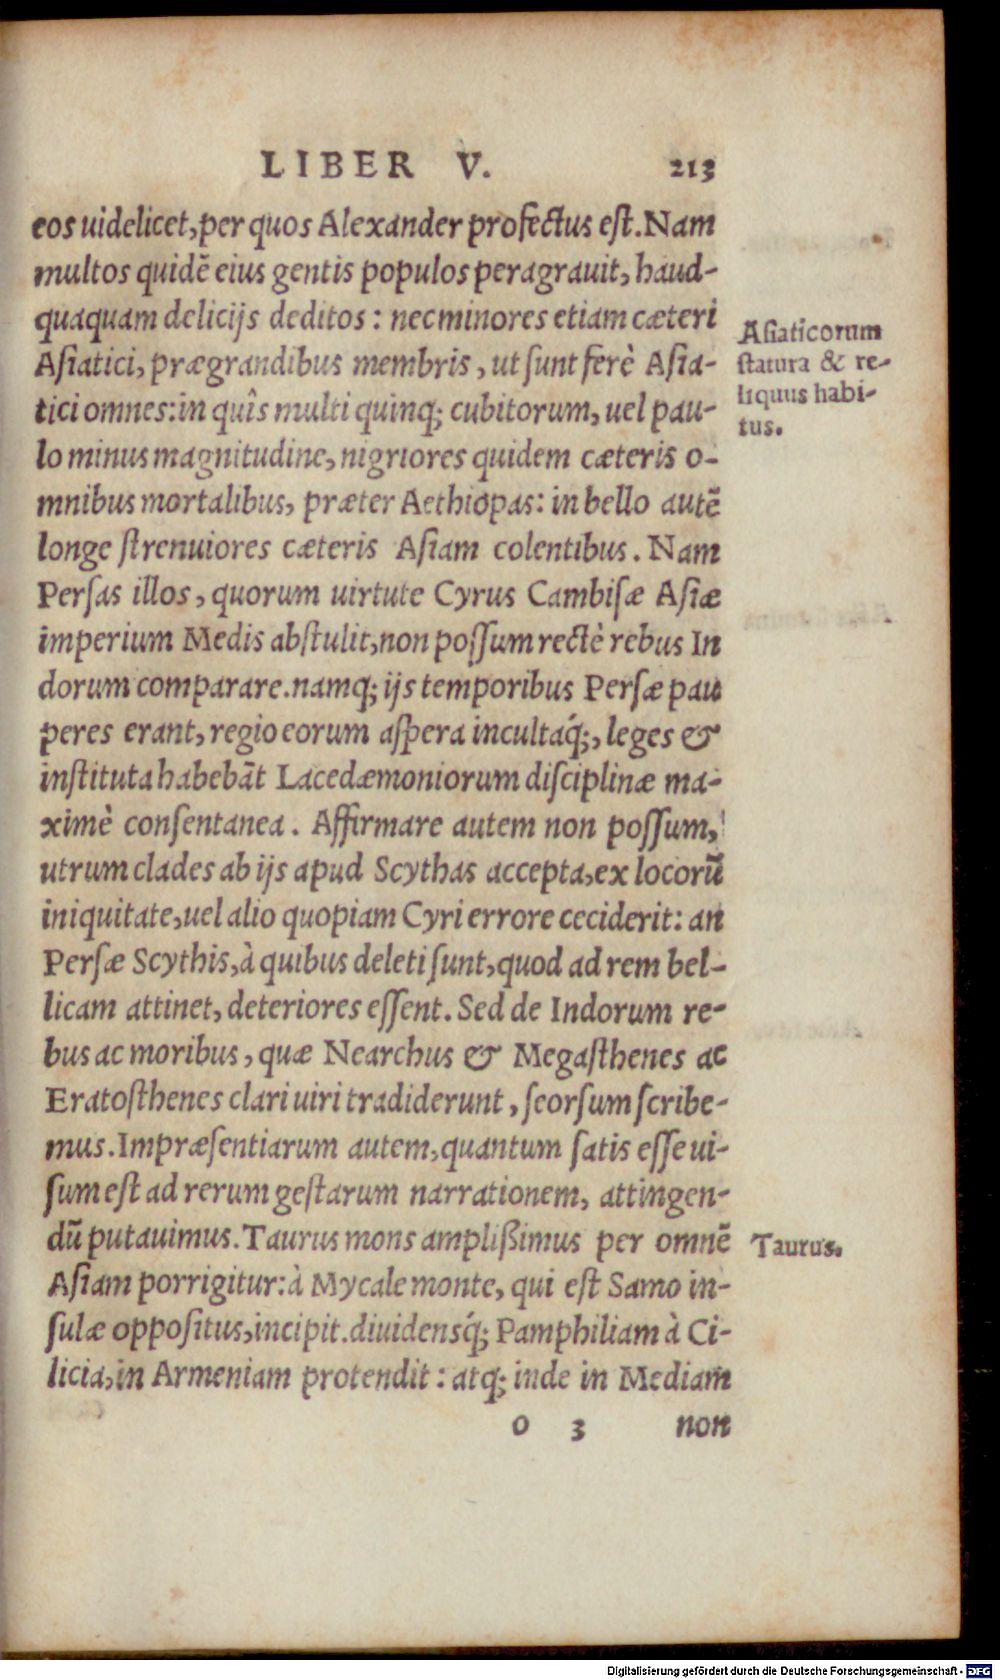 LIBER V. 213
eos uidelicet, per quos Alexander profectus est. Nam
multos quidē eius gentis populos peragrauit, haud-
quaquam delicijs deditos: nec minores etiam cæteri
Asiatici, prægrandibus membris, ut sunt ferè Asia-
tici omnes: in quîs multi quinq; cubitorum, uel pau-
lo minus magnitudine, nigriores quidem cæteris o-
mnibus mortalibus, præter Aethiopas: in bello autē
longe strenuiores cæteris Asiam colentibus. Nam
Persas illos, quorum uirtute Cyrus Cambisæ Asiæ
imperium Medis abstulit, non possum rectè rebus In
dorum comparare. namq; ijs temporibus Persæ pau
peres erant, regio eorum aspera incultaq́;, leges &
instituta habebāt Lacedæmoniorum disciplinæ ma-
ximè consentanea. Affirmare autem non possum,
utrum clades ab ijs apud Scythas accepta, ex locorū
iniquitate, uel alio quopiam Cyri errore ceciderit: an
Persæ Scythis, à quibus deleti sunt, quod ad rem bel-
licam attinet, deteriores essent. Sed de Indorum re-
bus ac moribus, quæ Nearchus & Megasthenes ac
Eratosthenes clari uiri tradiderunt, seorsum scribe-
mus. Impræsentiarum autem, quantum satis esse ui-
sum est ad rerum gestarum narrationem, attingen-
dū putauimus. Taurus mons amplißimus per omnē
Asiam porrigitur: à Mycale monte, qui est Samo in-
sulæ oppositus, incipit. diuidensq́; Pamphiliam à Ci-
licia, in Armeniam protendit: atq; inde in Mediam
o 3 non
Asiaticorum
statura & re-
liquus habi-
tus.
Taurus.
Digitalisierung gefördert durch die Deutsche Forschungsgemeinschaft - DFG